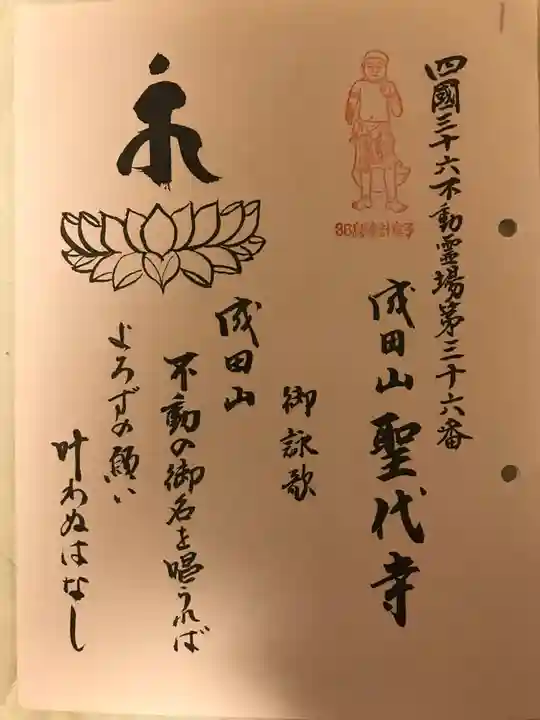 四國三十六不動霊場第三十六番
成田山 聖代寺
御詠歌
成田山
不動の御名を唱うれば
よろずの願い
叶わぬはなし